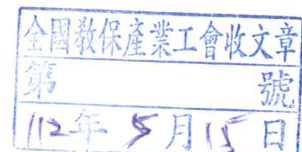 全國教保產業工會收文章
第 號
112年5月15日